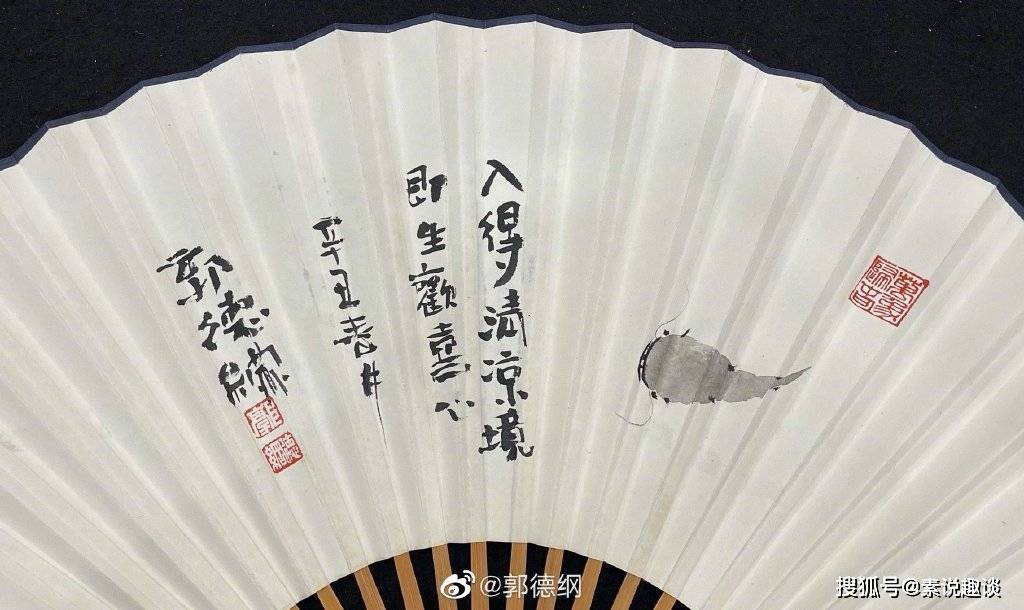 入得清凉境
即生歡喜心
辛丑春
郭德綱
郭
德綱
@郭德纲
搜狐号@素说趣谈